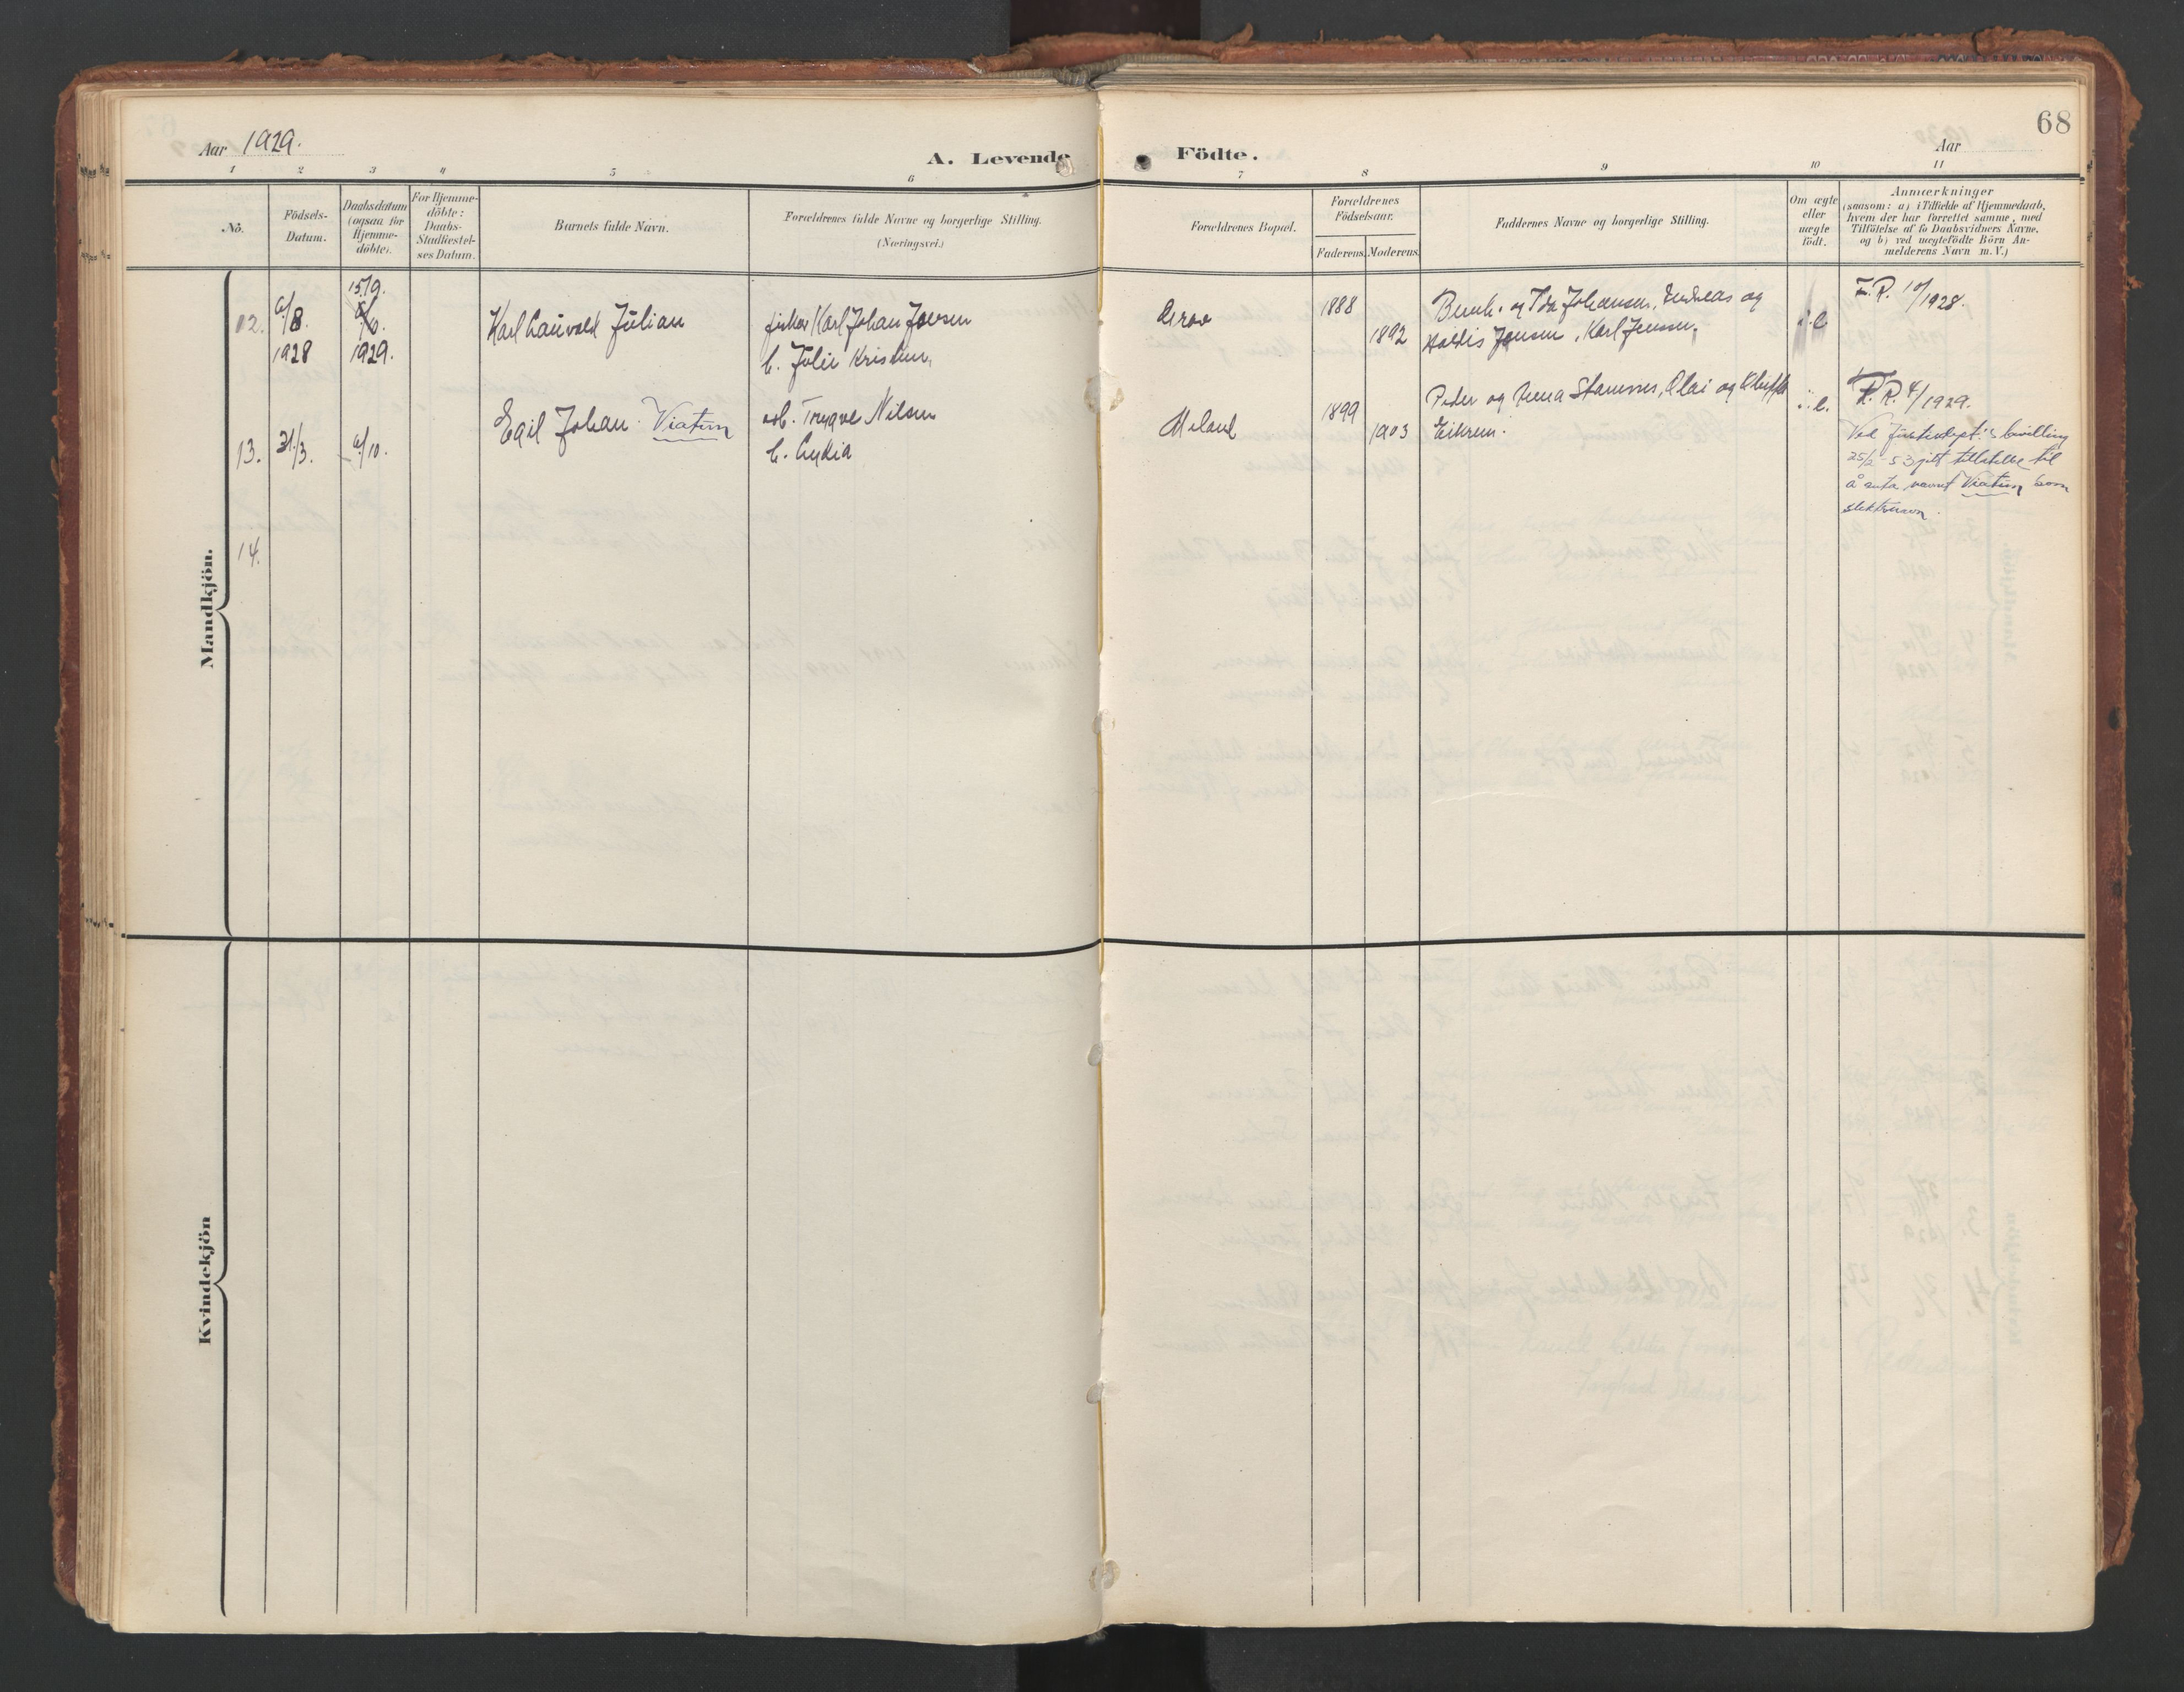 68
Aar 1929.
A. Levende Födte.
Aar
1 2 3 4 5 6 7 8 9 10 11
No.
Födsels-
Datum.
Daabsdatum
(ogsaa for
Hjemme-
döbte).
For Hjemme-
döbte:
Daabs-
Stadfæstel-
ses Datum.
Barnets fulde Navn.
Forældrenes fulde Navne og borgerlige Stilling.
(Næringsvei.)
Forældrenes Bopæl.
Forældrenes
Födselsaar.
Faderens. Moderens.
Faddernes Navne og borgerlige Stilling.
Om ægte
eller
uægte
födt.
Anmærkninger
(saasom: a) i Tilfælde af Hjemmedaab,
hvem der har forrettet samme, med
Tilföielse af to Daabsvidners Navne.
og b) ved uægtefödte Börn An-
melderens Navn m. V.)
Mandkjön.
12.
6/8.
1928
15/9.
1929.
Karl Lauvold Julian
fisker Karl Johan Jensen
h. Julie Kristine,
1888
1892
Bernh. og Ida Johansen, Andreas og
Haldis Jensen, Karl Jensen.
i.e
F.R. 10/1928.
13.
31/3.
6/10.
Egil Johan Viatun
arb. Trygve Nilsen
h. Lydia
Meland
1899
1903
Peder og Anna Stamnes, Olai og
Eikrem.
i.e.
F.R. 4/1929.
Ved justisdept.'s bevilling
25/2-53 gitt tillatelse til
å anta navnet Viatun som
slektsnavn.
14.
Kvindekjön